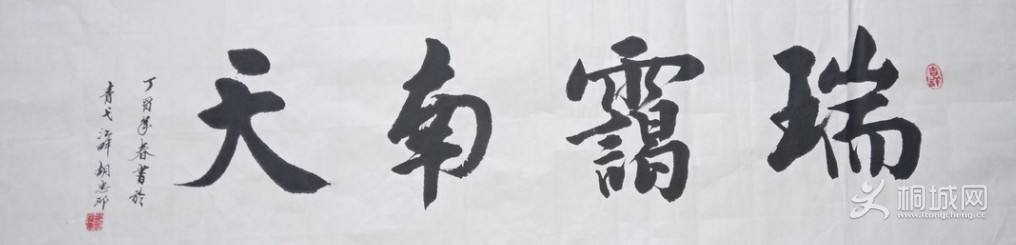 瑞靄南天
丁酉年春書於
青弋江畔胡忠邦
桐城网
www.itongcheng.cc